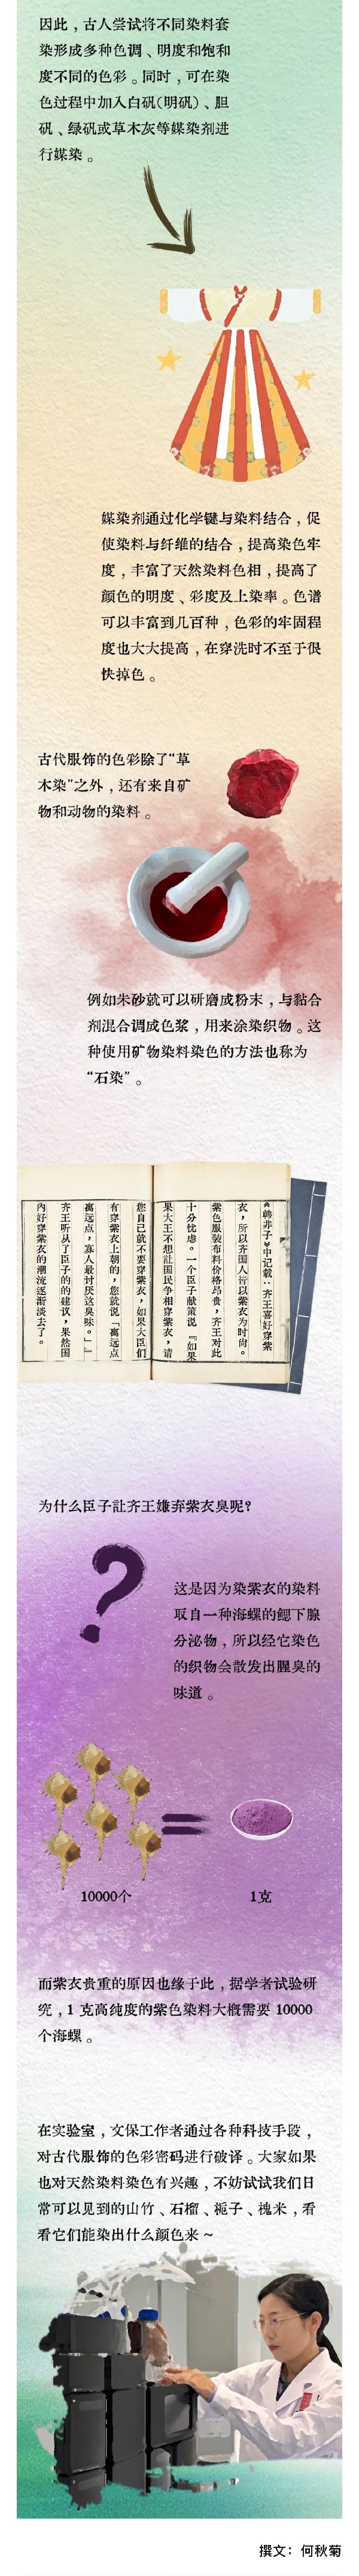 因此，古人尝试将不同染料套
染形成多种色调、明度和饱和
度不同的色彩。同时，可在染
色过程中加入白矾（明矾）、胆
矾、绿矾或草木灰等媒染剂进
行媒染。
媒染剂通过化学键与染料结合，促
使染料与纤维的结合，提高染色牢
度，丰富了天然染料色相，提高了
颜色的明度、彩度及上染率。色谱
可以丰富到几百种，色彩的牢固程
度也大大提高，在穿洗时不至于很
快掉色。
古代服饰的色彩除了“草
木染”之外，还有来自矿
物和动物的染料。
例如朱砂就可以研磨成粉末，与黏合
剂混合调成色浆，用来涂染织物。这
种使用矿物染料染色的方法也称为
“石染”。
《韩非子》中记载：齐王喜好穿紫
衣，所以齐国人皆以紫衣为时尚。
紫色服装布料价格昂贵，齐王对此
十分忧虑。一个臣子献策说『如果
果大王不想让国民争相穿紫衣，请
您自己就不要穿紫衣，如果大臣们
有穿紫衣上朝的，您就说「离远点
离远点，寡人最讨厌这臭味。」』
齐王听从了臣子的的建议，果然国
内好穿紫衣的潮流逐渐淡去了。
为什么臣子让齐王嫌弃紫衣臭呢？
这是因为染紫衣的染料
取自一种海螺的鳃下腺
分泌物，所以经它染色
的织物会散发出腥臭的
味道。
10000个
1克
而紫衣贵重的原因也缘于此，据学者试验研
究，1 克高纯度的紫色染料大概需要 10000
个海螺。
在实验室，文保工作者通过各种科技手段，
对古代服饰的色彩密码进行破译。大家如果
也对天然染料染色有兴趣，不妨试试我们日
常可以见到的山竹、石榴、栀子、槐米，看
看它们能染出什么颜色来～
撰文：何秋菊